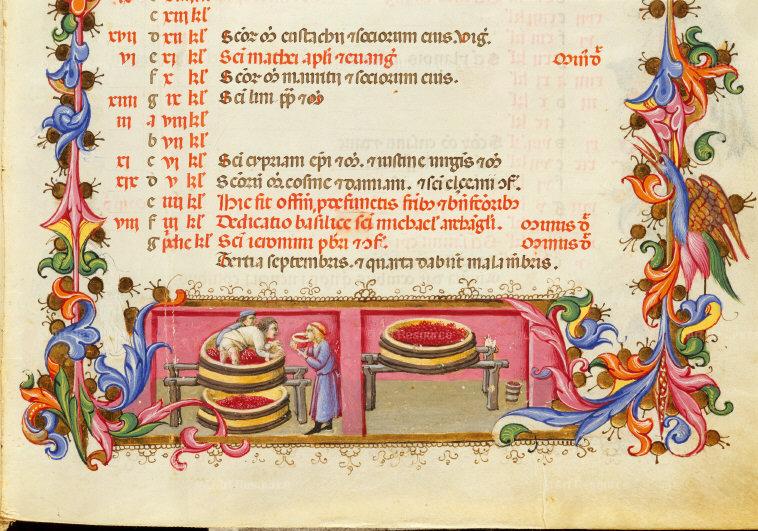 c xiii kl'
xvii d xii kl' Scōr m̄ eustachii et sociorum eius. Vig̃.
vi e xi kl' Sc̄i mathei apl̄i et euang̃ Minꝰ d̃
f x kl' Scōr m̄ mauritii et sociorum eius.
xiiii g ix kl' Sc̄i lini pp̄ et m̄
iii a viii kl'
b vii kl'
xi c vi kl' Sc̄i cypriani ep̄i et m̄. et iustine uirginis et m̄
xix d v kl' Scōrū m̄. cosme et damiani. et sc̄i elceani 9f.
e iiii kl' Hic fit offm̄ p defunctis frib' et bn̄fcōrib'
viii f iii kl' Dedicatio basilice sc̄i michael' archāgl̄i. Minus d̃
g pridie kl' Sc̄i ieronimi pbr̄i et 9f. Minus d̃
Tertia septembris. et quarta dabunt mala membris.